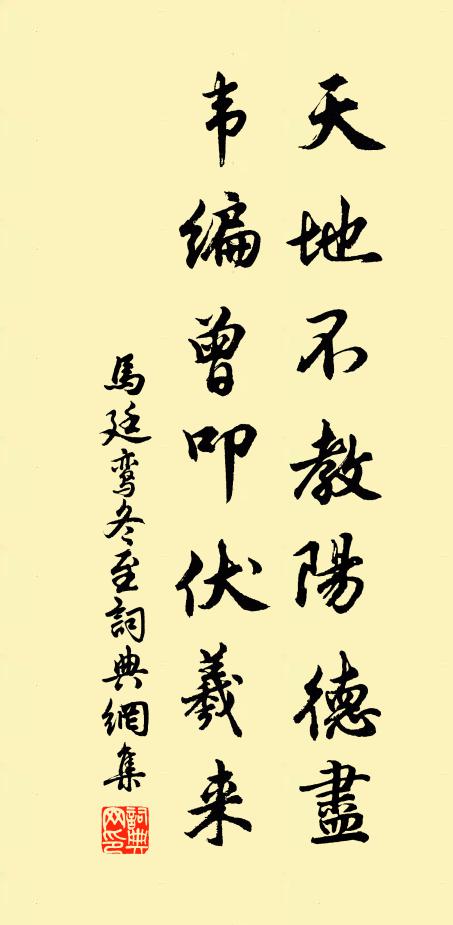 天地不教陽德盡
韦编曾叩伏羲来
馬廷鸾冬至詞典網集
詞典網印